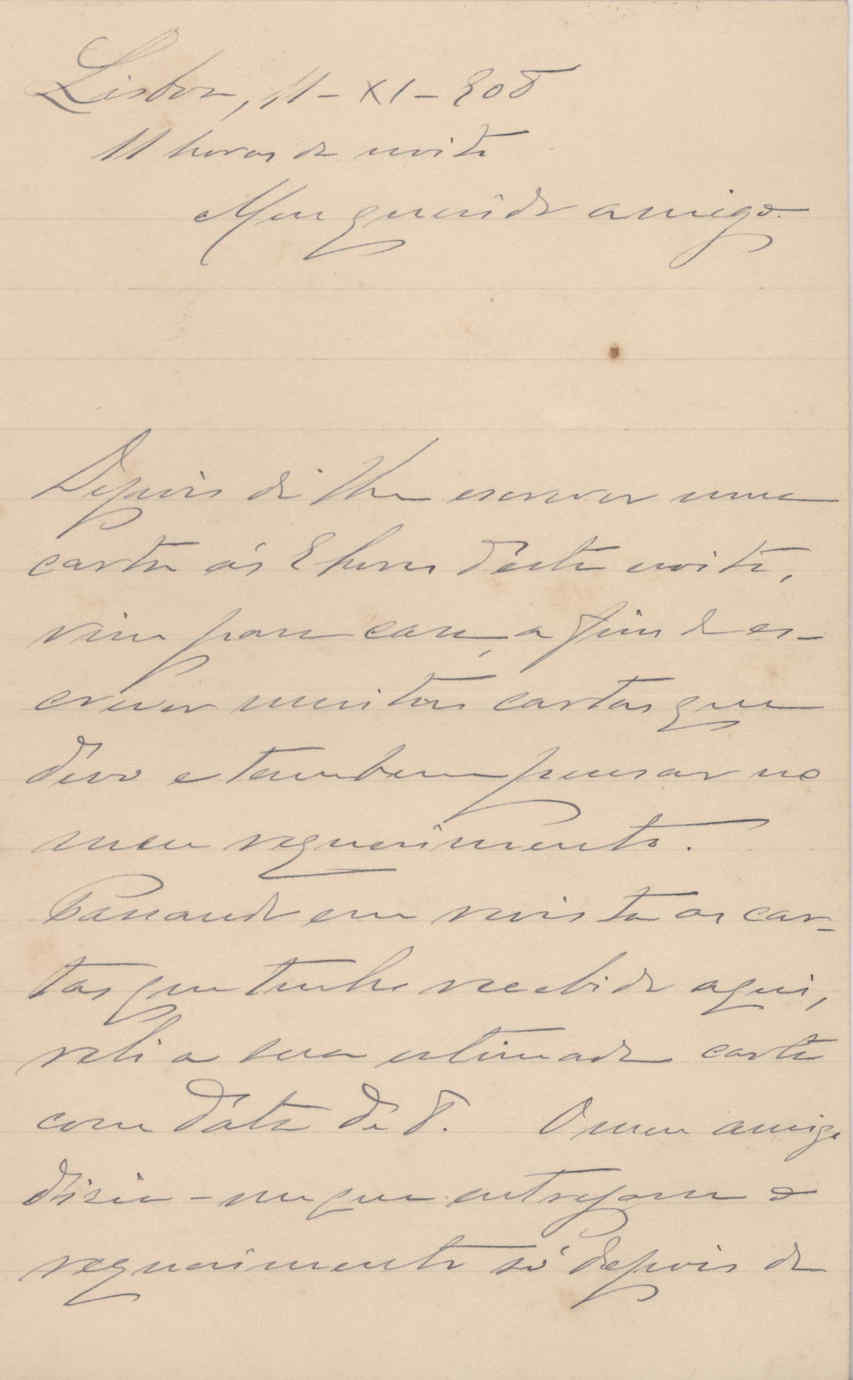 Lisboa, 11-XI-908
11 horas da noite
Meu querido amigo.
Depois de lhe escrever uma
carta ás 8 horas d'esta noite,
vim para casa, a fim de es-
crever muitas cartas que
devo e tambem pensar no
meu requerimento.
Passando em revista as car-
tas que tenho recebido aqui,
reli a sua estimada carta
com data de 8. O meu amigo
dizia-me que entregasse o
requerimento só depois de